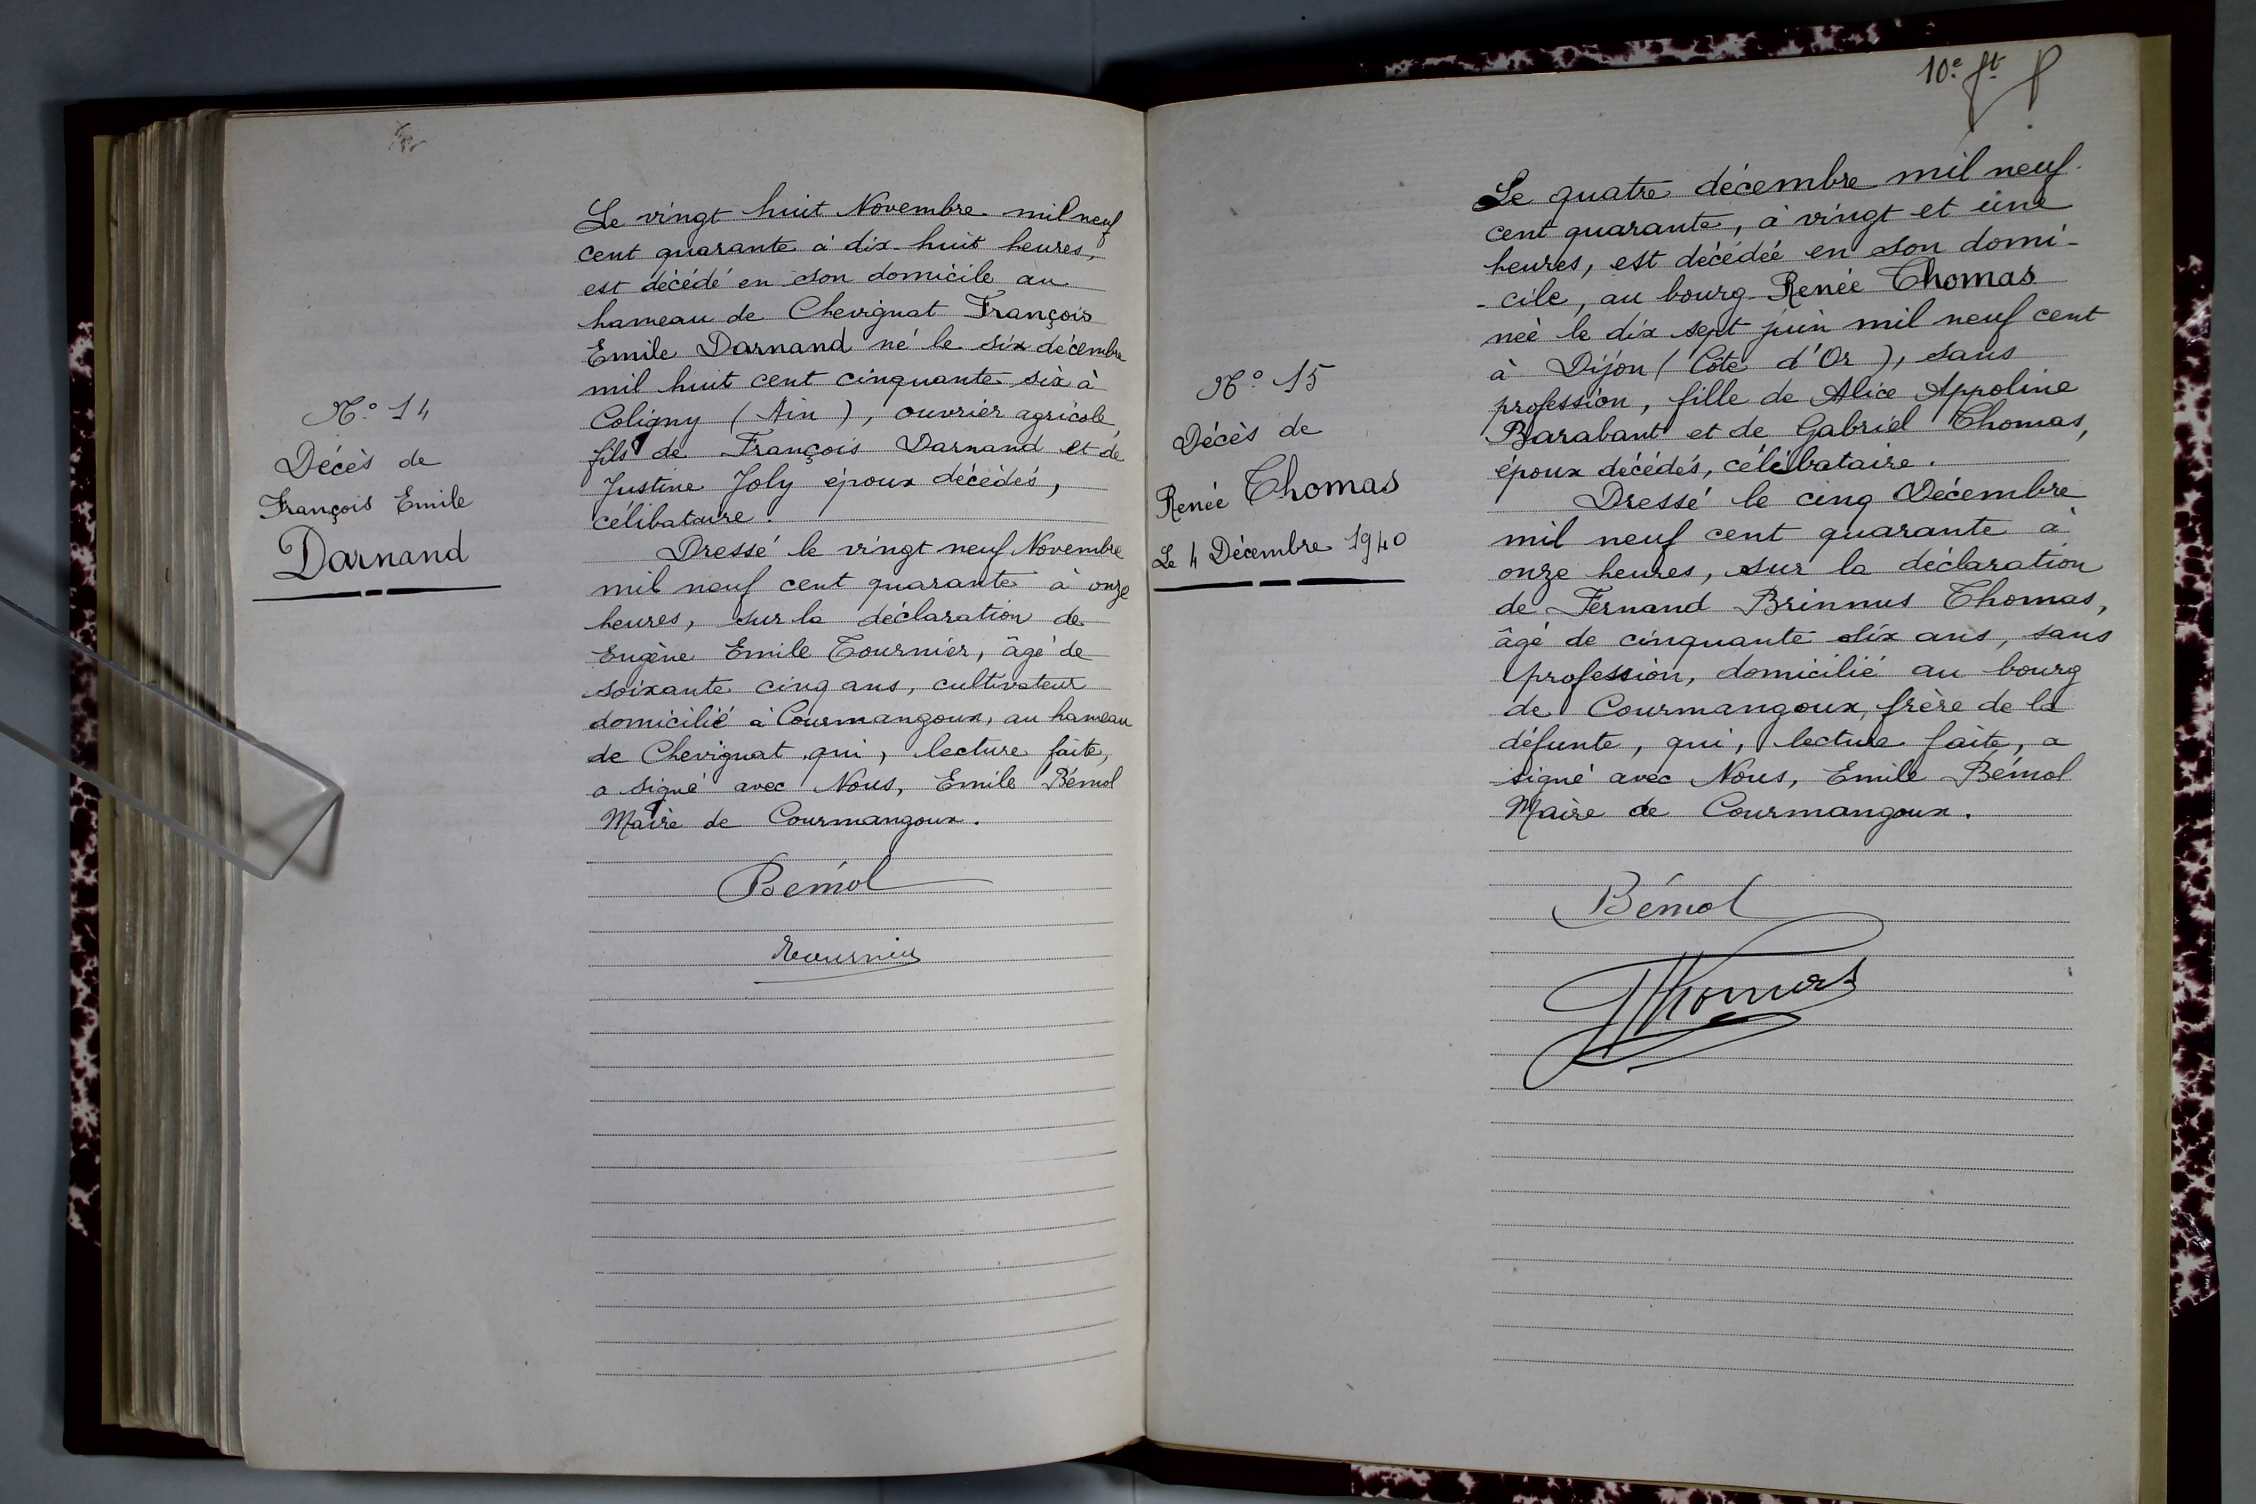 N.° 14
Décès de
François Emile
Darnand
Le vingt huit Novembre mil neuf
cent quarante à dix-huit heures,
est décédé en son domicile au
hameau de Chevignat François
Emile Darnand né le six décembre
mil huit cent cinquante six à
Coligny (Ain), ouvrier agricole,
fils de François Darnand et de
Justine Joly époux décédés,
célibataire.
Dressé le vingt neuf Novembre
mil neuf cent quarante à onze
heures, sur la déclaration de
Eugène Emile Tournier, âgé de
soixante cinq ans, cultivateur
domicilié à Courmangoux, au hameau
de Chevignat qui, lecture faite,
a signé avec Nous, Emile Bémol
Maire de Courmangoux.
Bémol
Tournier
10.e f.t
N.° 15
Décès de
Renée Thomas
Le 4 Décembre 1940
Le quatre décembre mil neuf
cent quarante, à vingt et une
heures, est décédée en son domi-
-cile, au bourg Renée Thomas
née le dix sept juin mil neuf cent
à Dijon (Côte d'Or), sans
profession, fille de Alice Appoline
Barabant et de Gabriel Thomas,
époux décédés, célibataire.
Dressé le cinq Décembre
mil neuf cent quarante à
onze heures, sur la déclaration
de Fernand Brinnus Thomas,
âgé de cinquante dix ans, sans
profession, domicilié au bourg
de Courmangoux, frère de la
défunte, qui, lecture faite, a
signé avec Nous, Emile Bémol
Maire de Courmangoux.
Bémol
Thomas